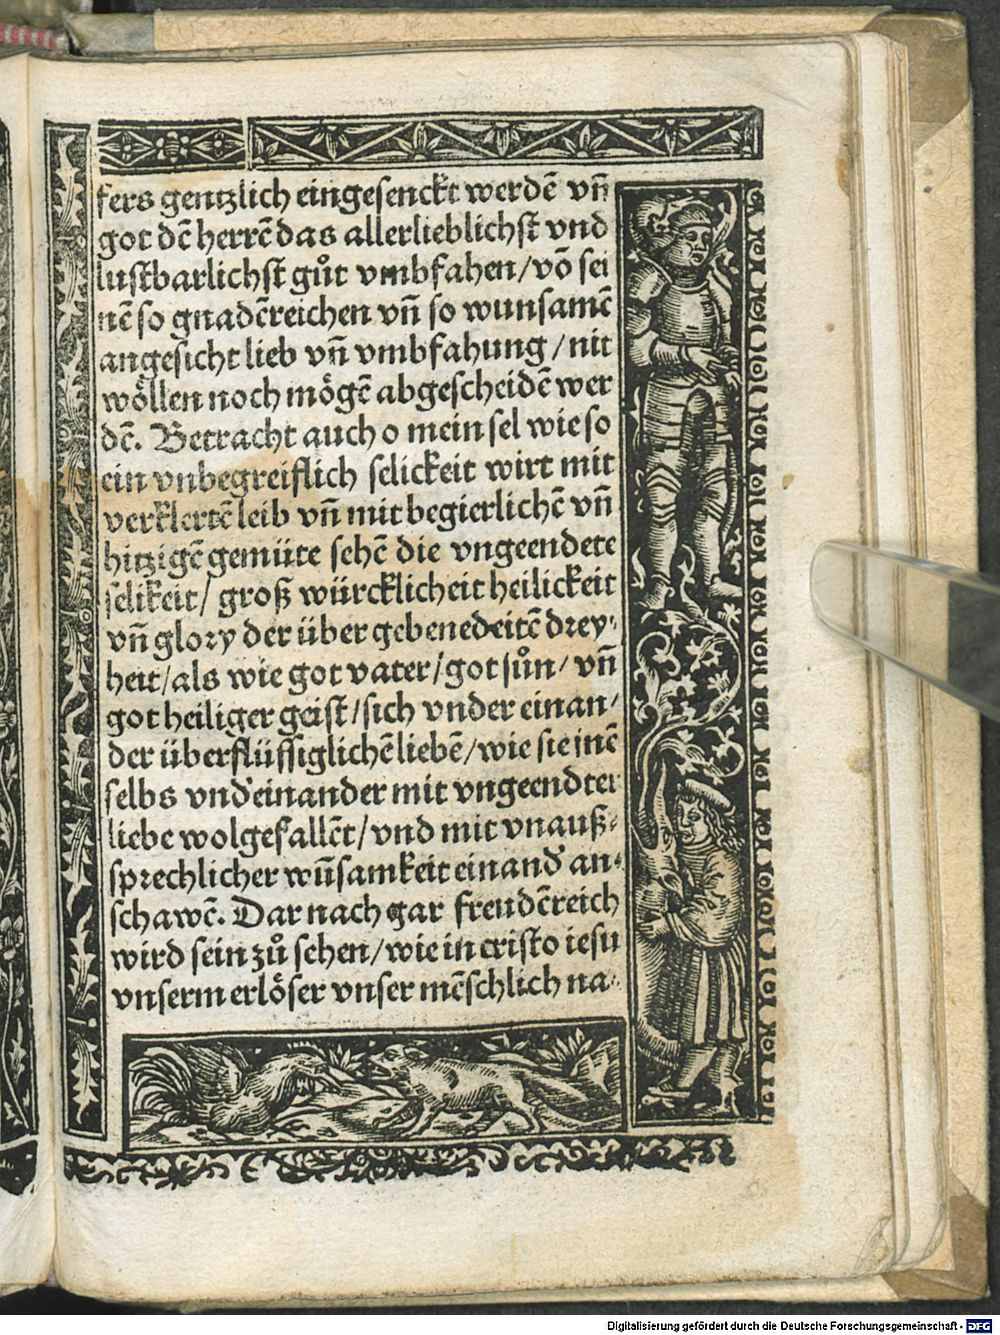 fers gentzlich eingesenckt werdē vn̄
got dē herrē das allerlieblichst vnd
lustbarlichst gůt vmbfahen/vō sei
nē so gnadēreichen vn̄ so wunsamē
angesicht lieb vn̄ vmbfahung/nit
wöllen noch mögē abgescheidē wer
dē. Betracht auch o mein sel wie so
ein vnbegreiflich selickeit wirt mit
verklertē leib vn̄ mit begierlichē vn̄
hitzigē gemüte sehē die vngeendete
selikeit/ groß würcklicheit heilickeit
vn̄ glory der über gebenedeitē drey⸗
heit/als wie got vater/got sůn/ vn̄
got heiliger geist/sich vnder einan⸗
der überflüssiglichē liebē/wie sie inē
selbs vnd einander mit vngeendter
liebe wolgefallēt/vnd mit vnauß⸗
sprechlicher wūsamkeit einand an⸗
schawē. Dar nach gar freudēreich
wird sein zů sehen/wie in cristo iesu
vnserm erlöser vnser mēschlich na⸗
Digitalisierung gefördert durch die Deutsche Forschungsgemeinschaft - DFG